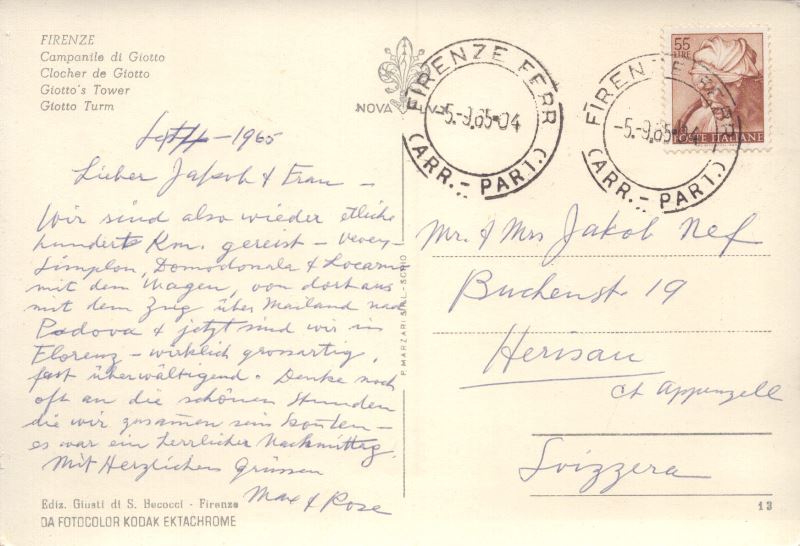 FIRENZE
Campanile di Giotto
Clocher de Giotto
Giotto's Tower
Giotto Turm
NOVA LUX
FIRENZE FERR
-5.-9.65-04
(ARR.- PART.)
FIRENZE FERR
-5.-9.65-04
(ARR.- PART.)
55
LIRE
POSTE ITALIANE
Sept/4-1965
Lieber Jakob & Frau -
Wir sind also wieder etliche
hundert Km. gereist - Vevey-
Simplon, Domodossola & Locarno
mit dem Wagen, von dort aus
mit dem Zug über Mailand nach
Padova & jetzt sind wir in
Florenz - wirklich grossartig,
fast überwältigend. Denke noch
oft an die schönen Stunden
die wir zusammen sein konnten -
es war ein herrlicher Nachmittag.
Mit Herzlichen Grüssen
Max & Rose
Mr. & Mrs Jakob Nef
Buchenstr 19
Herisau
Ct Appenzell
Svizzera
P. MARZARI S.R.L. - SCHIO
Ediz. Giusti di S. Becocci - Firenze
DA FOTOCOLOR KODAK EKTACHROME
13